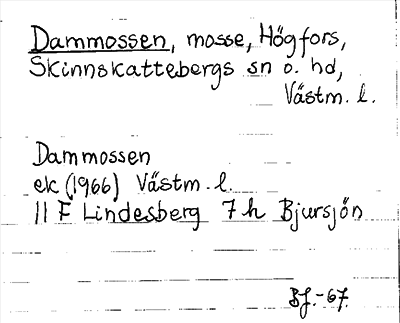 Dammossen, mosse, Högfors,
Skinnskattebergs sn o. hd,
Västm. l.
Dammossen
ek (1966) Västm. l.
11 F Lindesberg 7 h Bjursjön
Bf.-67.